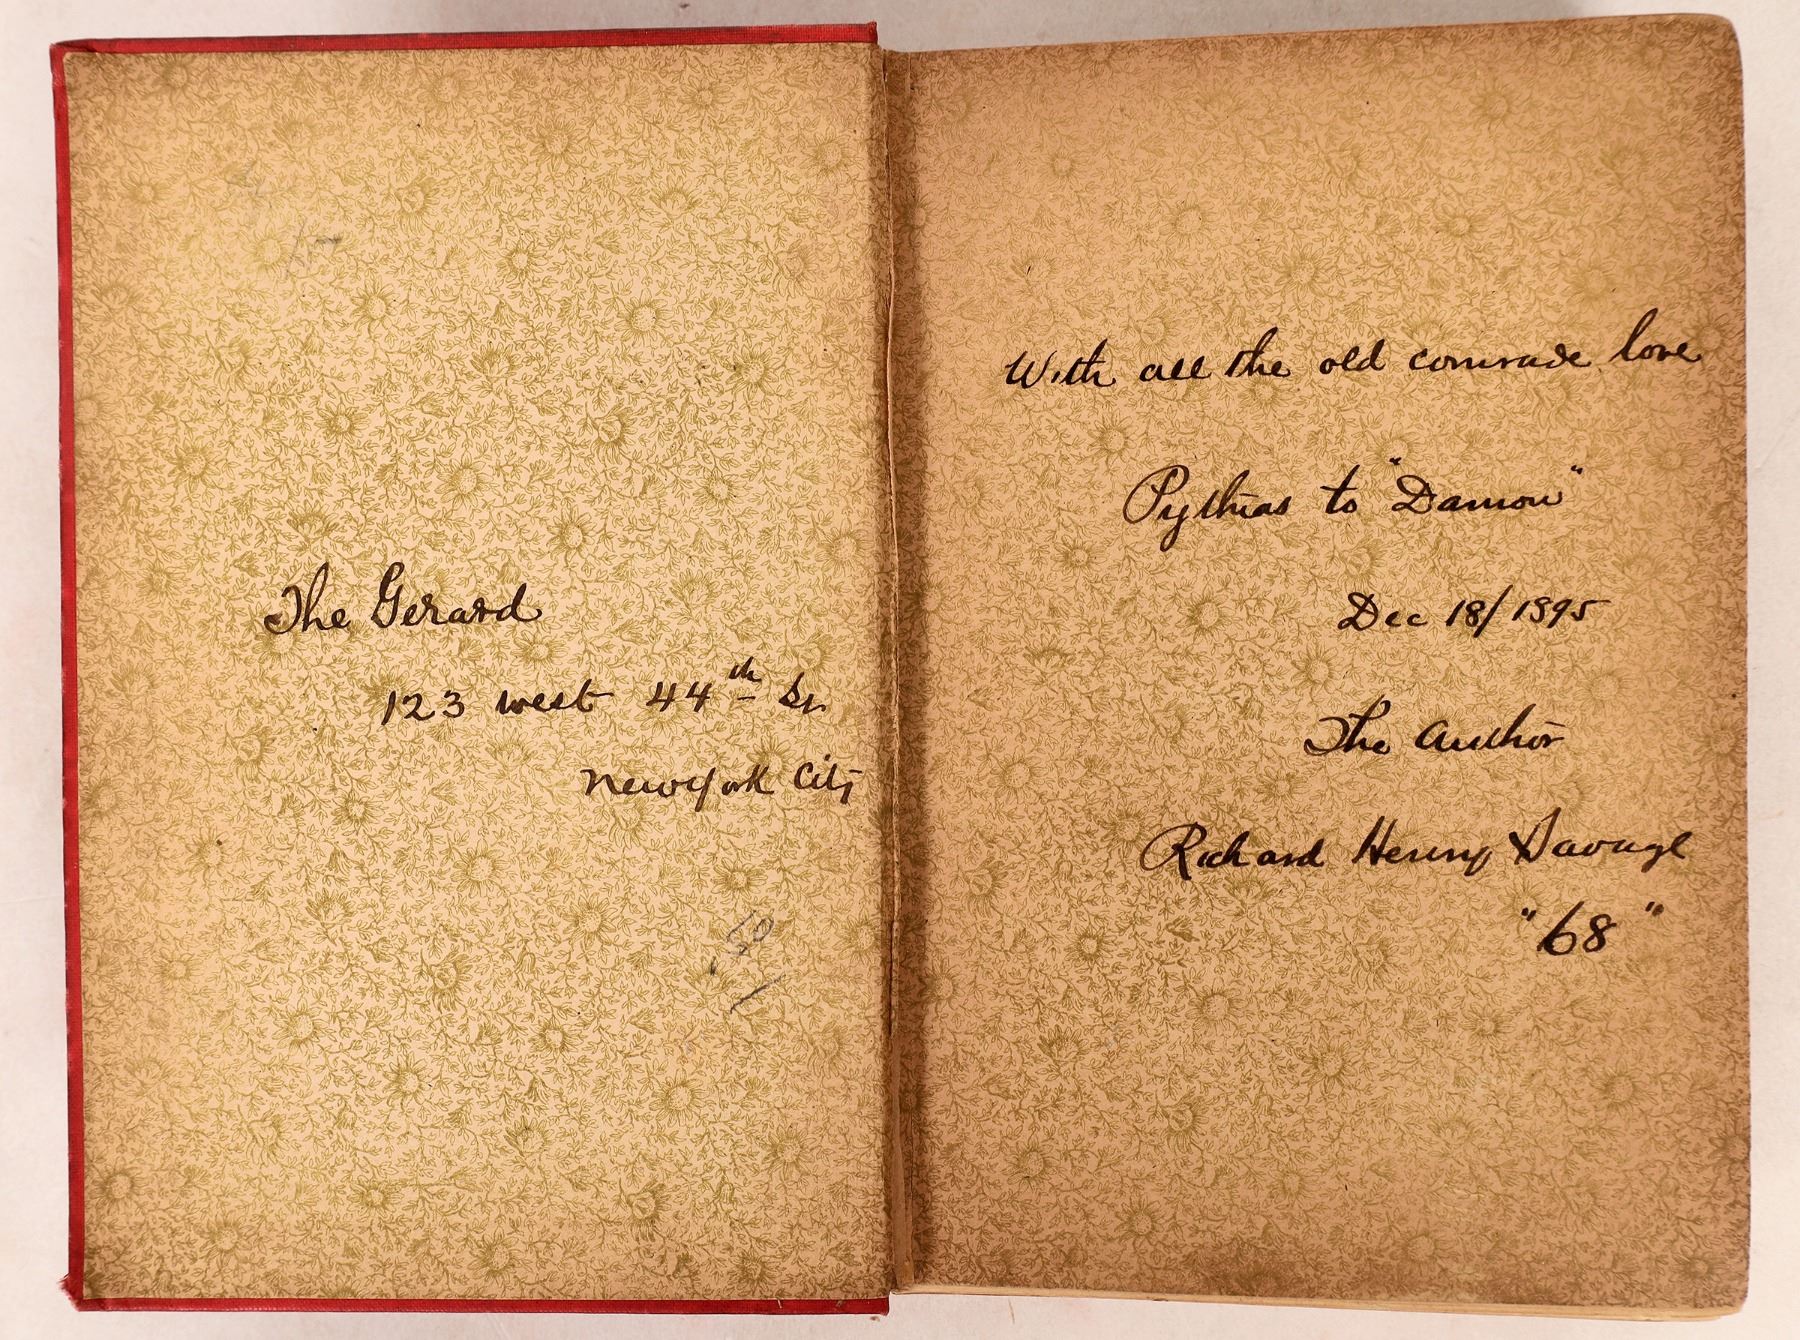 The Gerard
123 west 44th St.
New York City
.50
With all the old comrade love
Pythias to "Damon"
Dec 18/1895
The Author
Richard Henry Savage
"68"